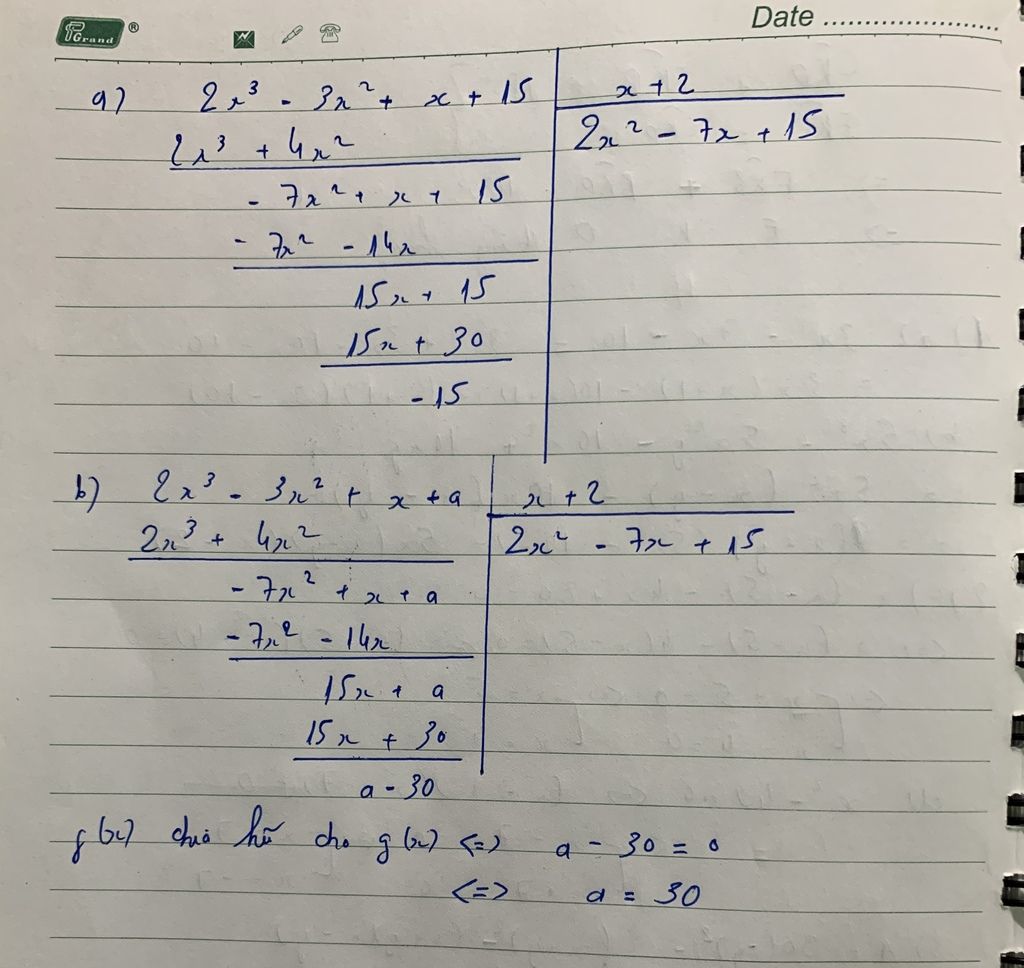 Grand ®
Date ........................
a) 2x³ - 3x² + x + 15 | x + 2
2x³ + 4x² | 2x² - 7x + 15
- 7x² + x + 15
- 7x² - 14x
15x + 15
15x + 30
- 15
b) 2x³ - 3x² + x + a | x + 2
2x³ + 4x² | 2x² - 7x + 15
- 7x² + x + a
- 7x² - 14x
15x + a
15x + 30
a - 30
f(x) chia hết cho g(x) <=> a - 30 = 0
<=> a = 30